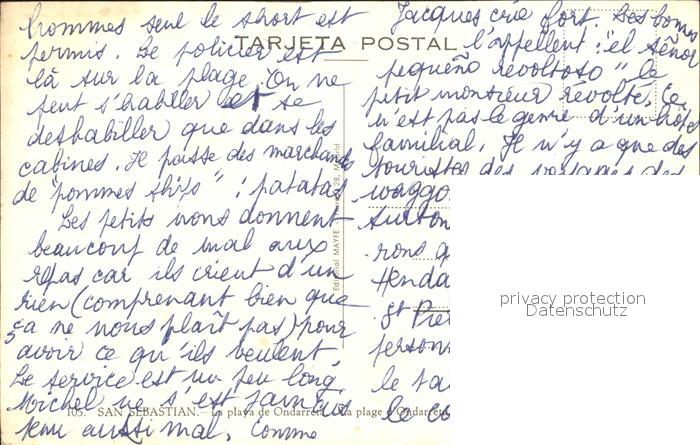 hommes seul le short est
permis. Le policier est
là sur la plage. On ne
peut s'habiller et se
deshabiller que dans les
cabines. Il passe des marchands
de "pommes ships" : patatas.
Les petits nous donnent
beaucoup de mal aux
repas car ils crient d'un
rien (comprenant bien que
ça ne nous plaît pas) pour
avoir ce qu'ils veulent.
Le service est un peu long.
Michel ne s'est jamais
tenu aussi mal. Comme
TARJETA POSTAL
Jacques crie fort. Les bonnes
l'appellent : "el señor
pequeño revoltoso" le
petit monsieur révolté. Ce
n'est pas le genre d'un hôtel
familial. Il n'y a que des
touristes des
waggo
surton
rons
Henda
St Pie
person
le ta
le co
Editorial MAYFE
105. SAN SEBASTIAN.- La playa de Ondarreta. La plage d'Ondarreta
privacy protection
Datenschutz